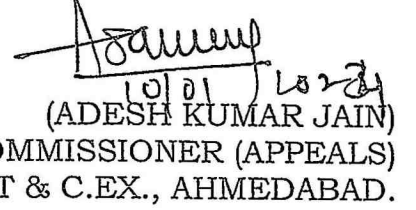 10/01/2024
(ADESH KUMAR JAIN)
OMMISSIONER (APPEALS)
T & C.EX., AHMEDABAD.